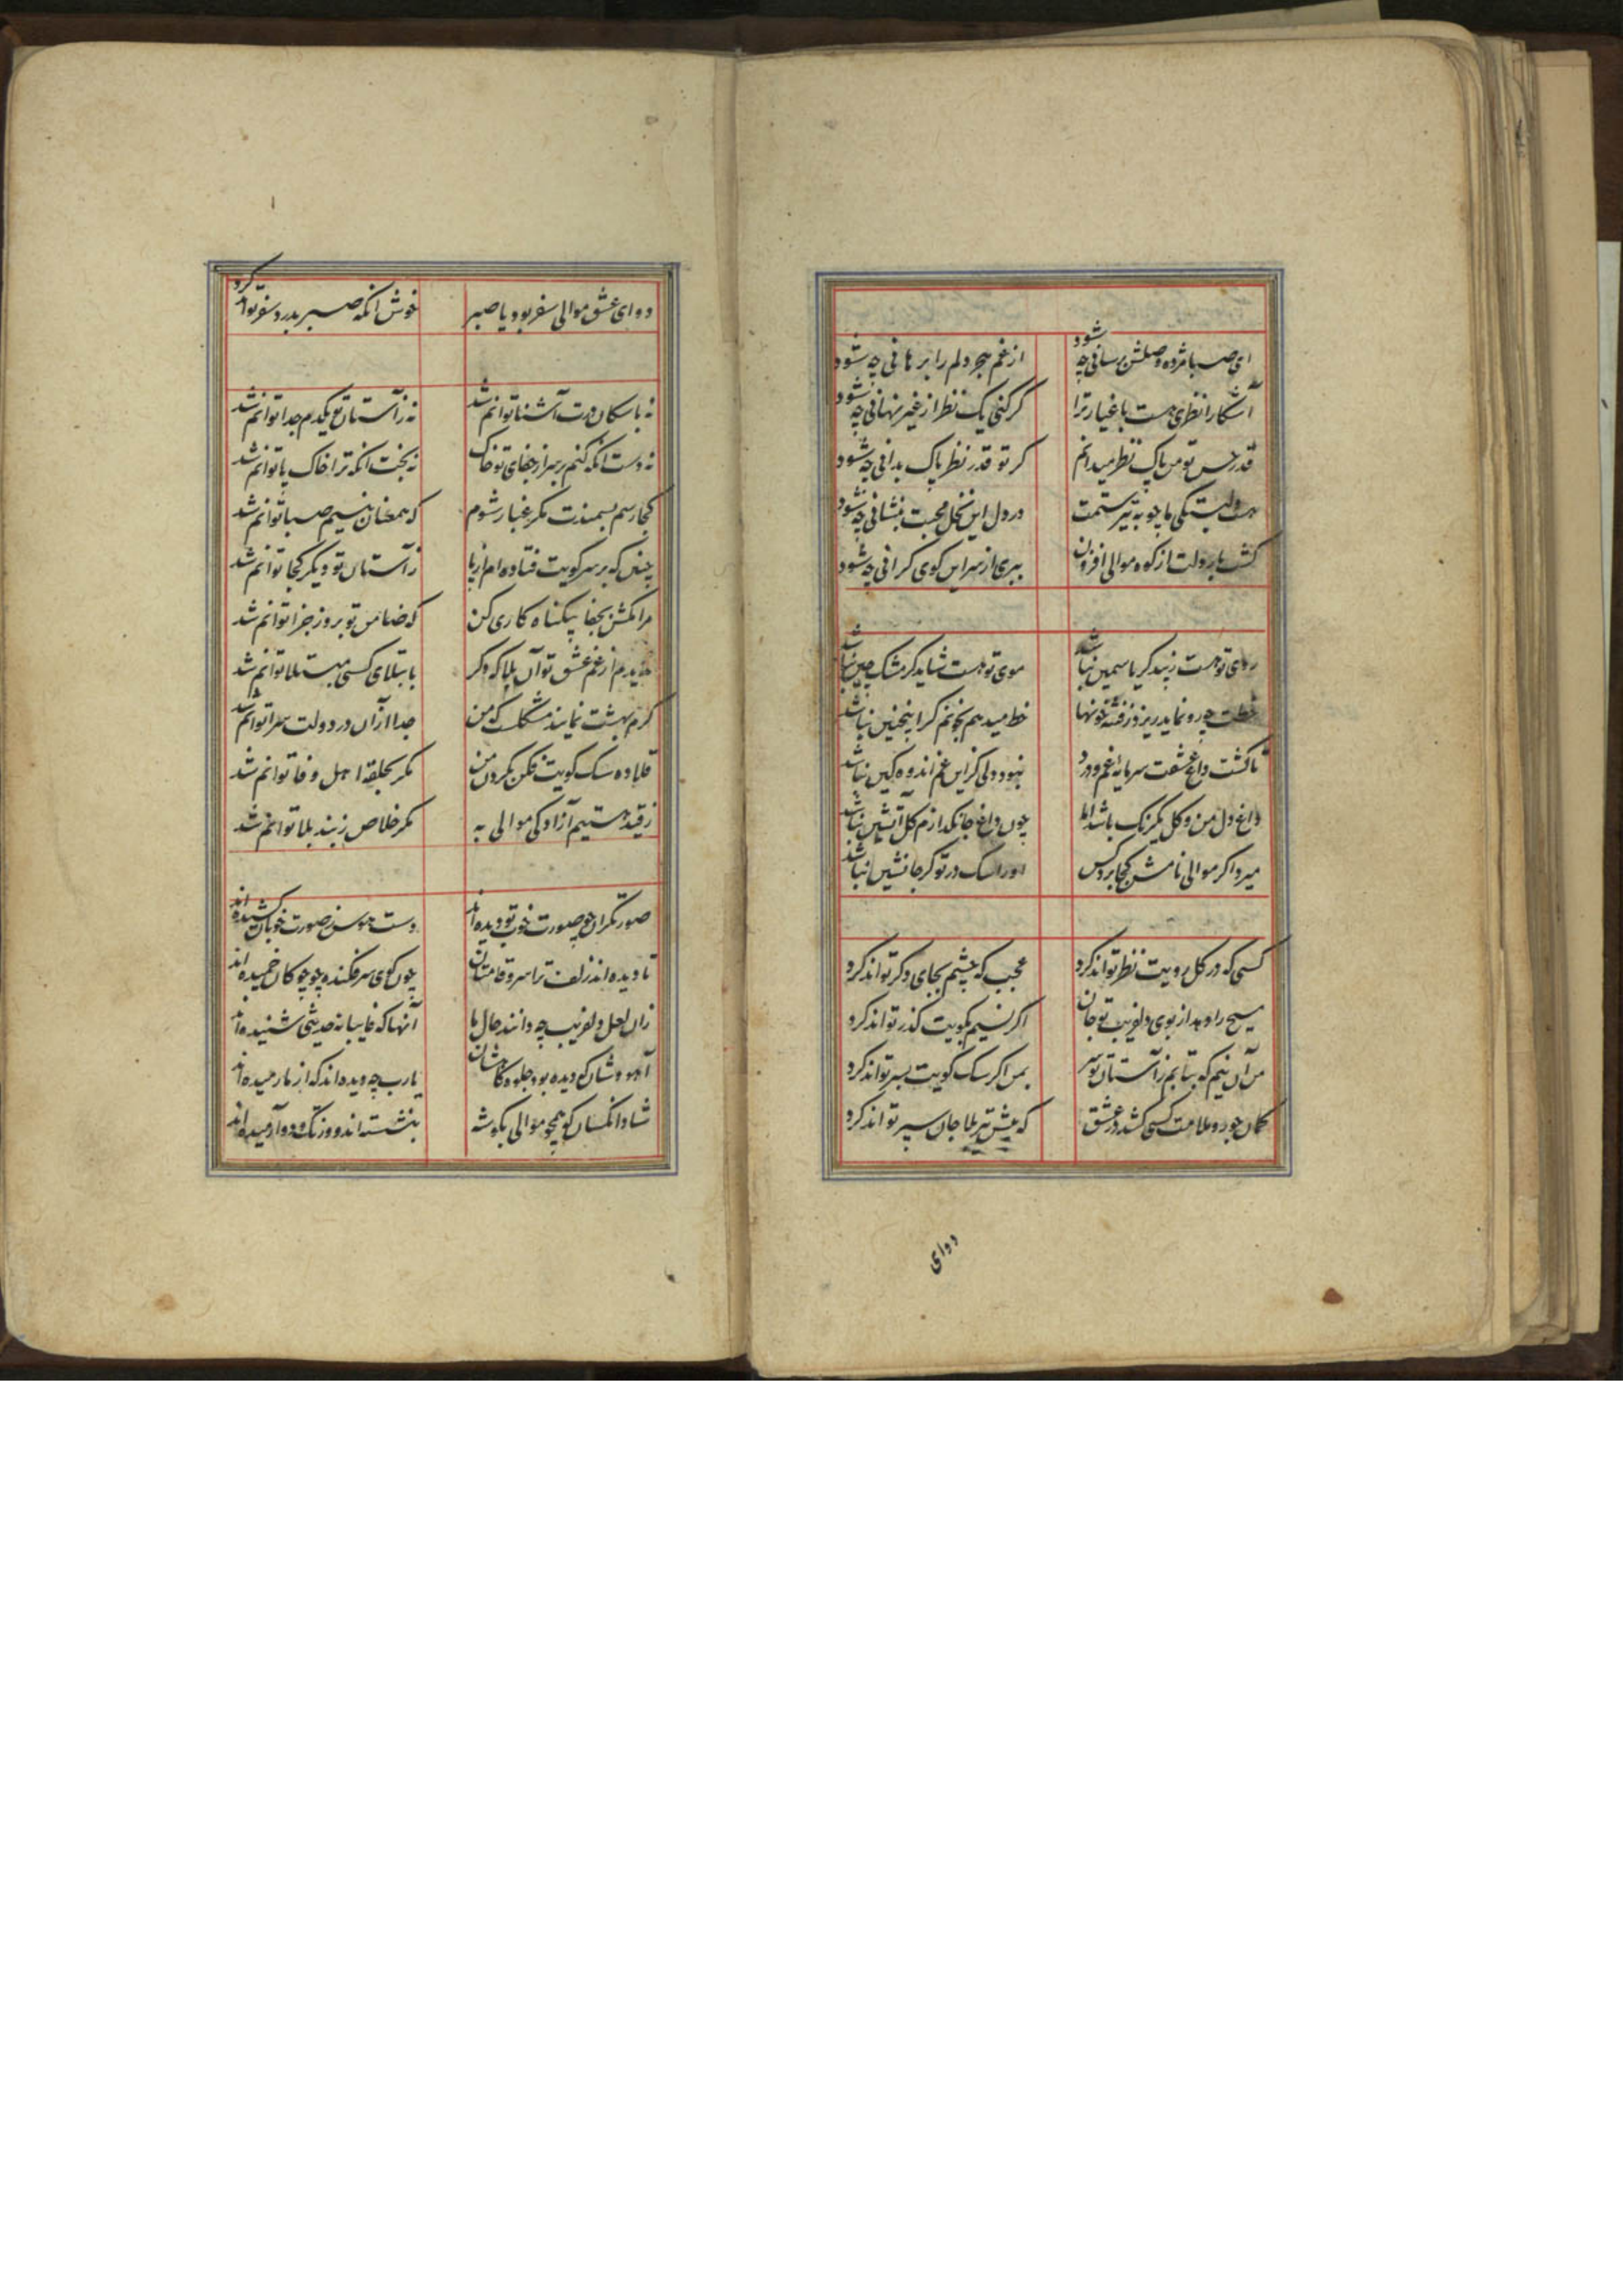 ای صبا مژده وصلش برسانی چه شود
از غم هجر دلم را برهانی چه شود
آشکارا نظری هست باغیار ترا
کر کنی یک نظر از غیر نهانی چه شود
قدر حسن تو من پاک نظر میدانم
کر تو قدر نظر پاک بدانی چه شود
در دل این نخل محبت بنشانی چه شود
کش بار دولت از کوه موالی افزون
ببری از سر این کوی کرانی چه شود
روی تو هست زیبد کر یاسمین نباشد
موی تو هست شاید کر مشک چین نباشد
چو رو نماید ریزد ز فتنه خونها
خط میدهم بخونم کر اینچنین نباشد
تا کشت داغ عشقت سرمایه غم و درد
نبود دلی کزین غم اندوهکین نباشد
داغ دل من و کل یکرنک باشد اما
چون داغ جانکدازم کل آتشین نباشد
میرد اکر موالی نامش کجا برد کس
او را سک در تو کر جانشین نباشد
کسی که در کل رویت نظر تواند کرد
عجب که چشم بجای دکر تواند کرد
مسیح را دهد از بوی دلفریب تو جان
اکر نسیم بکویت کذر تواند کرد
من آن نیم که بتابم ز آستان تو سر
بمن اکر سک کویت بسر تواند کرد
کمان جور و ملامت کسی کشد در عشق
که پیش تیر بلا جان سپر تواند کرد
دوای
دوای عشق موالی سفر بود یا صبر
خوش انکه صبر بدرد سفر تواند کرد
نه با سکان درت آشنا توانم شد
نه ز آستان تو یکدم جدا توانم شد
نه دست انکه کنم بر سر از جفای تو خاک
نه بخت انکه ترا خاک پا توانم شد
کجا رسم بسمندت مکر غبار شوم
که همعنان نسیم صبا توانم شد
چنین که بر سر کویت فتاده ام از پا
ز آستان تو دیکر کجا توانم شد
مرا مکش بجفا بیکناه کاری کن
که ضامن تو بروز جزا توانم شد
ندیدم از غم عشق تو آن بلا که دکر
بابتلای کسی مبتلا توانم شد
کرم بهشت نمایند مشکلست که من
جدا از آن در دولت سرا توانم شد
قلاده سک کویت فکن بکردن من
مکر بحلقه اهل وفا توانم شد
ز قید هستیم آزادکی موالی به
مکر خلاص ز بند بلا توانم شد
صورتکران چو صورت خوب تو دیده اند
دست هوس ز صورت خوبان کشیده اند
تا دیده اند زلف ترا سرو قامتان
چون کوی سر فکنده چو چوکان خمیده اند
زان لعل دلفریب چه دانند حال ما
آنها که غایبانه حدیثی شنیده اند
آهو وشان که دیده بود جلوه کاهشان
یارب چه دیده اند که از ما رمیده اند
شاد انکسان که همچو موالی بکوشه
بنشسته اند و وز تک و دو آرمیده اند